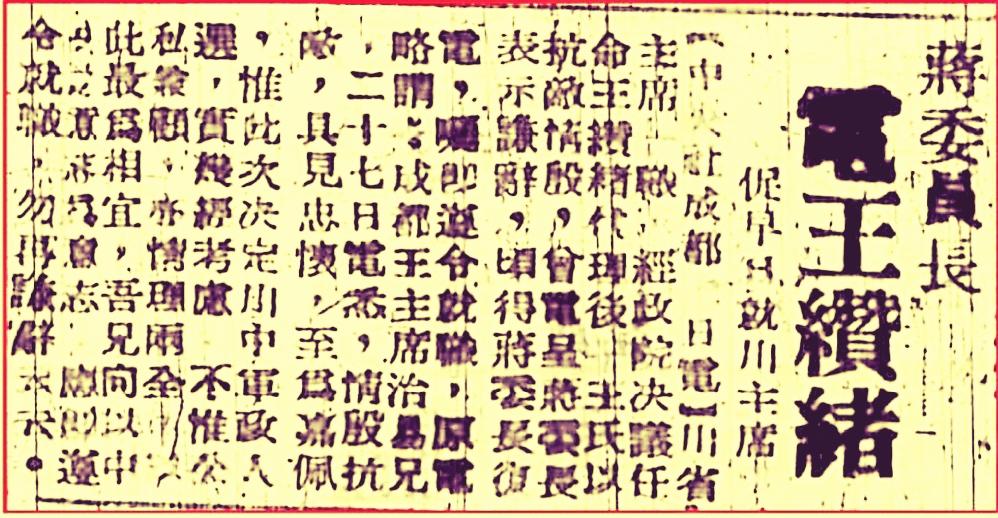 蔣委員長
電王纘緒
促早日就川主席
【中 社成都 日電】川省
主席 職,經政院決議任
命王纘緒代理後, 王氏以
抗敵情殷,會電呈蔣委長
表示謙辭,頃得蔣委長復
電,囑即遵令就職,原電
略謂:成都王主席治易兄
,二十七日電悉,情殷抗
敵,具見忠懷,至為嘉佩
,惟此次决定川中軍政人
選,實幾經考慮 不惟公
私兼顧,亦情理兩全
此最為相宜,吾兄向以中
意志為意志 應即遵
令就職,勿再謙辭 云云。